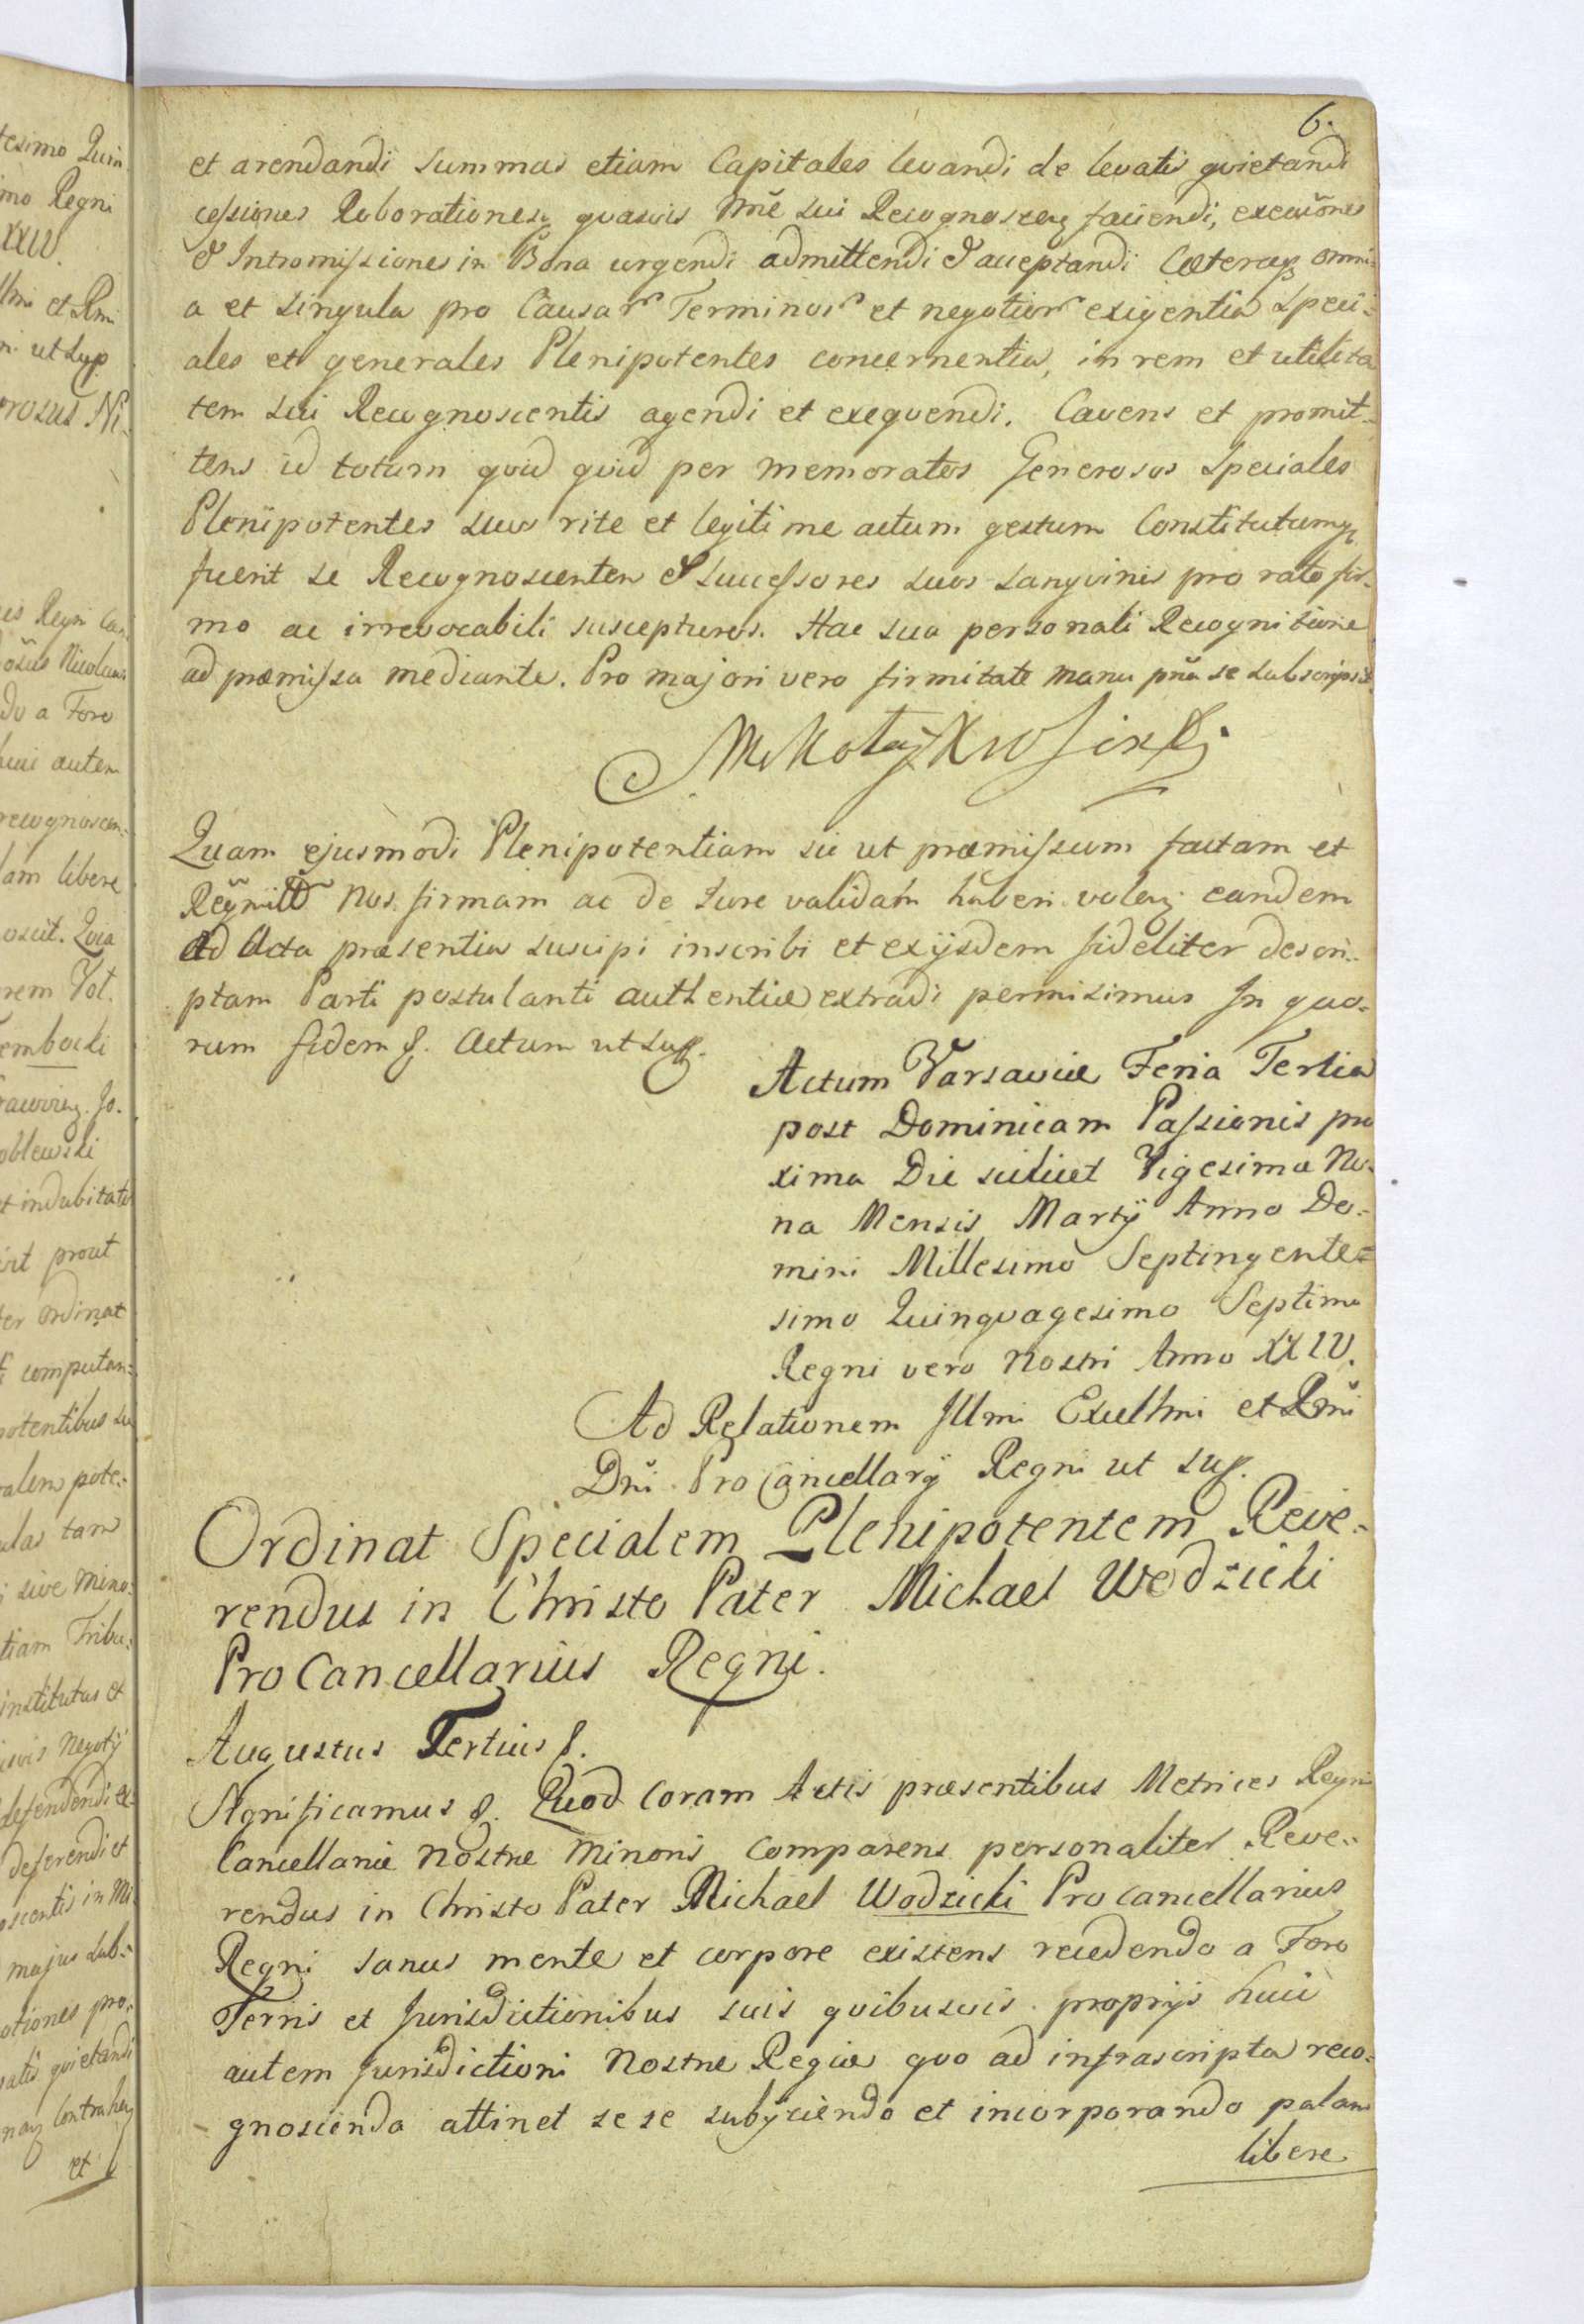 6.
et arendandi summas etiam Capitales levandi de levatis quietandi
cessiones Roborationesq quasvis nõe sui Recognoscenz faciendi, execuõnes
& Intromissiones in Bona urgendi admittendi & acceptandi Cæteraqz omni=
a et singula pro Causar Terminor et negotior exigentia speci=
ales et generales Plenipotentes concernentia, in rem et utilita
tem sui Recognoscentis agendi et exequendi. Cavens et promit=
tens id totum quid quid per memoratos Generosos Speciales
Plenipotentes suos rite et legitime actum gestum Constitutumq
fuerit se Recognoscentem & successores suos sanguinis pro rato fir=
mo ac irrevocabili suscepturos. Hac sua personali Recognitione
ad præmissa mediante. Pro majori vero firmitate manu pña se subscripsit
Mikołaj
Quam ejusmodi Plenipotentiam sic ut præmissum factam et
Nos firmam ac de Jure validam haberi volenz eandem
ad Acta præsentia suscipi inscribi et exijsdem fideliter descri=
ptam Parti postulanti authentice extradi permisimus In quo=
rum fidem &. Actum ut sup.
Actum Varsaviæ Feria Tertia
post Dominicam Passionis pro
xima Die scilicet Vigesima No=
na Mensis Martij Anno Do=
mini Millesimo Septingente=
simo Quinquagesimo Septimo
Regni vero Nostri Anno XXIV.
Ad Relationem Illmi Excellmi et Rmi
Dni ProCancellarij Regni ut sup.
Ordinat Specialem Plenipotentem Reve=
rendus in Christo Pater Michael Wodzicki
ProCancellarius Regni.
Augustus Tertius &.
Significamus &. Quod coram Actis præsentibus Metrices Regni
Cancellariæ Nostræ Minoris comparens personaliter Reve=
rendus in Christo Pater Michael Wodzicki ProCancellarius
Regni sanus mente et corpore existens recedendo a Foro
Terris et Jurisdictionibus suis quibusvis proprijs huic
autem Jurisdictioni Nostræ Regiæ quo ad infrascripta reco=
gnoscenda attinet se se subijciendo et incorporando palam
libere